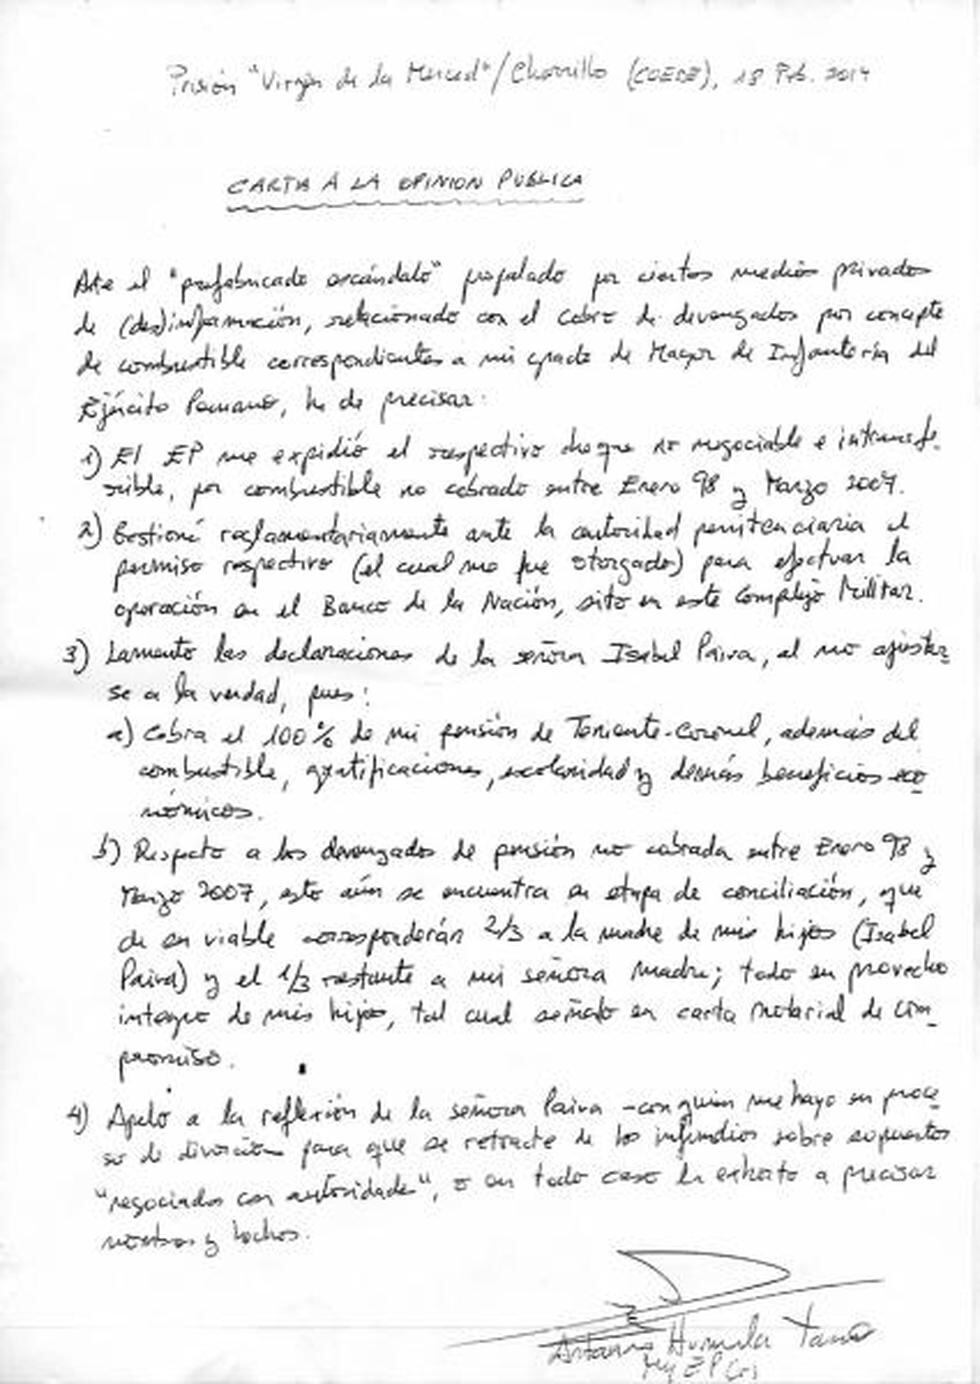 Prisión "Virgen de la Merced"/Chorrillo (COEDE), 18 Feb. 2014
CARTA A LA OPINION PUBLICA
Ate el "prefabricado escándalo" propalado por ciertos medios privados
de (des)información, relacionado con el cobro de devengados por concepto
de combustible correspondientes a mi grado de Mayor de Infantería del
Ejército Peruano, he de precisar:
1) El EP me expidió el respectivo cheque no negociable e intransfe-
rible, por combustible no cobrado entre Enero 98 y Marzo 2007.
2) Gestioné reglamentariamente ante la autoridad penitenciaria el
permiso respectivo (el cual me fue otorgado) para efectuar la
operación en el Banco de la Nación, sito en este Complejo Militar.
3) Lamento las declaraciones de la señora Isabel Paiva, al no ajustar
se a la verdad, pues:
a) Cobra el 100% de mi pensión de Teniente-Coronel, además del
combustible, gratificaciones, escolaridad y demás beneficios eco
nómicos.
b) Respecto a los devengados de pensión no cobrada entre Enero 98 y
Marzo 2007, esto aún se encuentra en etapa de conciliación, que
de en viable corresponderán 2/3 a la madre de mis hijos (Isabel
Paiva) y el 1/3 restante a mi señora madre; todo en provecho
integro de mis hijos, tal cual señalo en carta notarial de com_
promiso.
4) Apelo a la reflexión de la señora Paiva -con quien me hayo en proce
so de divorcio- para que se retracte de los infundios sobre supuestos
"negociados con autoridades", o en todo caso la exhorto a precisar
nombres y hechos.
Antauro Humala Tasso
My EP